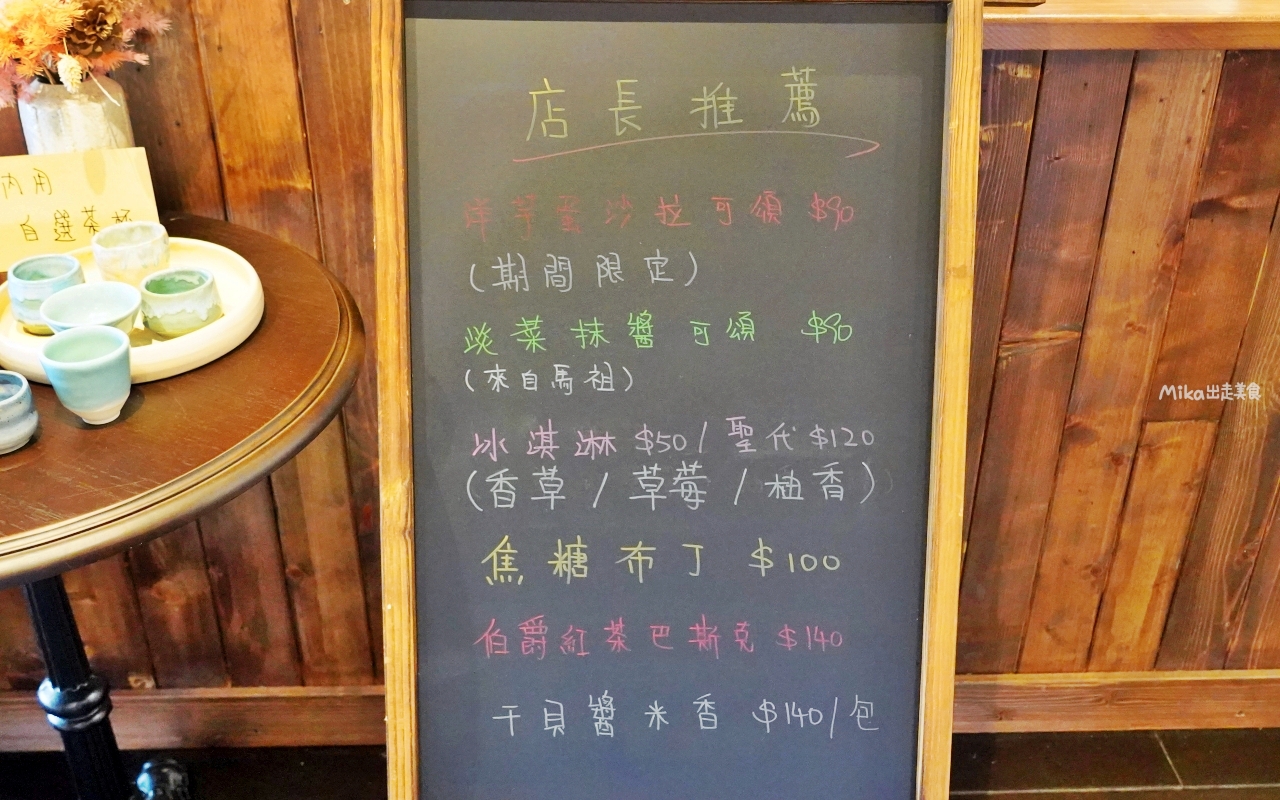 店長推薦
洋芋蛋沙拉可頌 $90
(期間限定)
紫菜抹醬可頌 $90
(來自馬祖)
冰淇淋 $50/聖代 $120
(香草/草莓/柚香)
焦糖布丁 $100
伯爵紅茶巴斯克 $140
干貝醬米香 $140/包
內用
自選茶杯
Mika出走美食